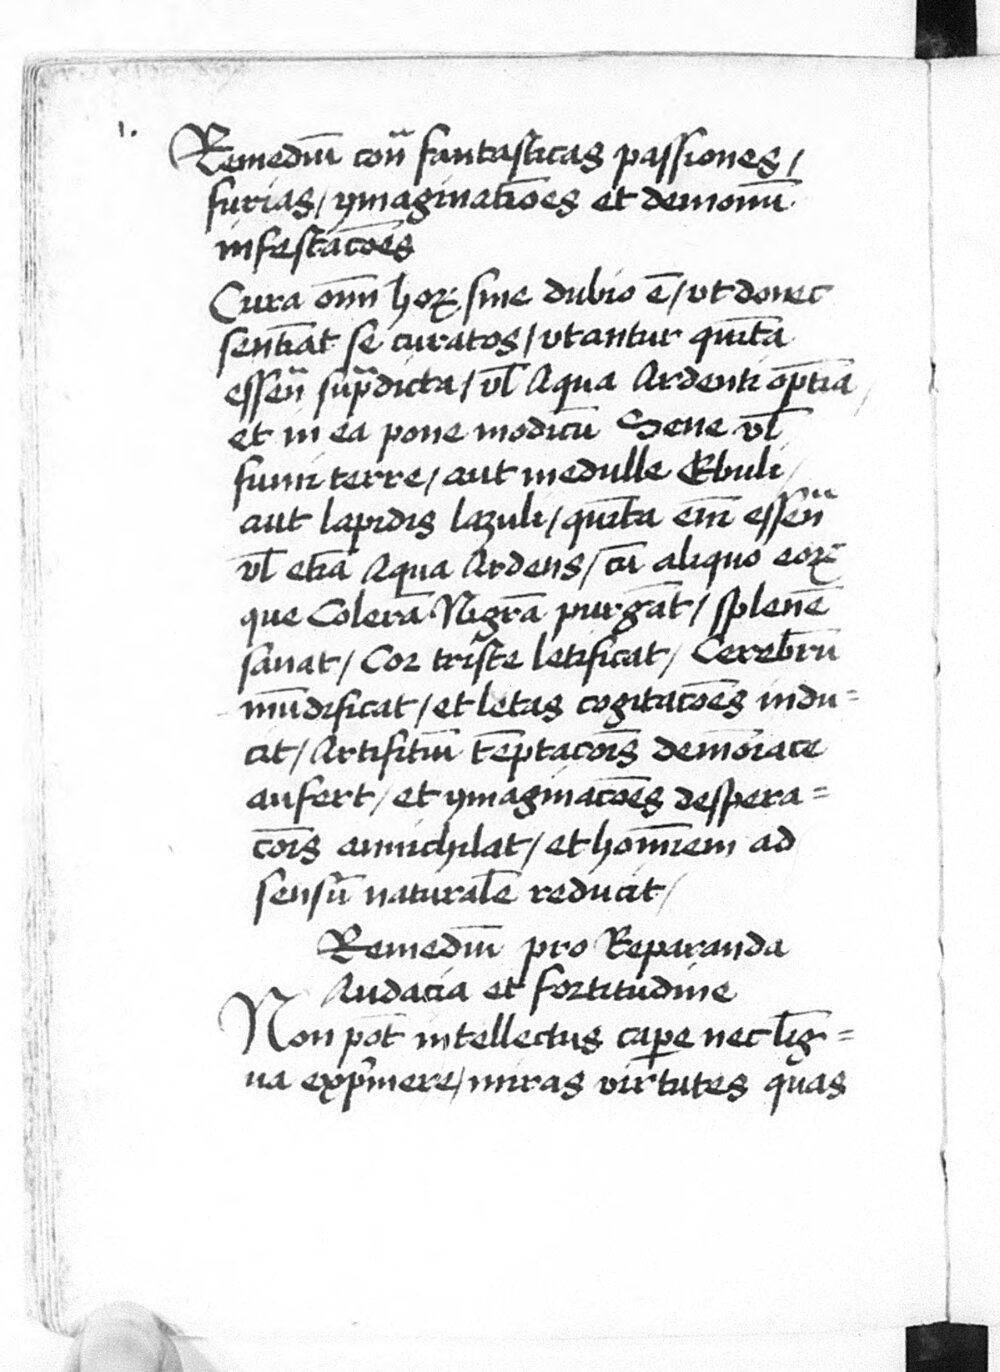 1. Remediū coñ fantasticas passiones/
furias/ ymaginatiōes et demonū
infestacōes
Cura om̄ hoꝝ sine dubio ē/ vt donec
sentiāt se curatos/ vtantur quīta
esseñ sup̄dicta/ vl̄ Aqua Ardenti optīa/
et in ea pone modicū Sene vl̄
fumi terre/ aut medulle Ebuli/
aut lapidis lazuli/ quīta em̄ esseñ
vl̄ etiā Aqua Ardens/ cū aliquo eoꝝ
que Colerā Nigrā purgāt/ splenē
sanat/ Cor triste letificat/ Cerebrū
mūdificat/ et letas cogitacōes indu=
cit/ Artifitiū tēptacōis demōiace
aufert/ et ymaginacōes despera=
cōis annichilat/ et homīem ad
sensū naturalē reducit/
Remediū pro Reparanda
Audacia et fortitudine
Non pōt intellectus cape̱ nec līg=
ua exp̄mere/ miras virtutes quas